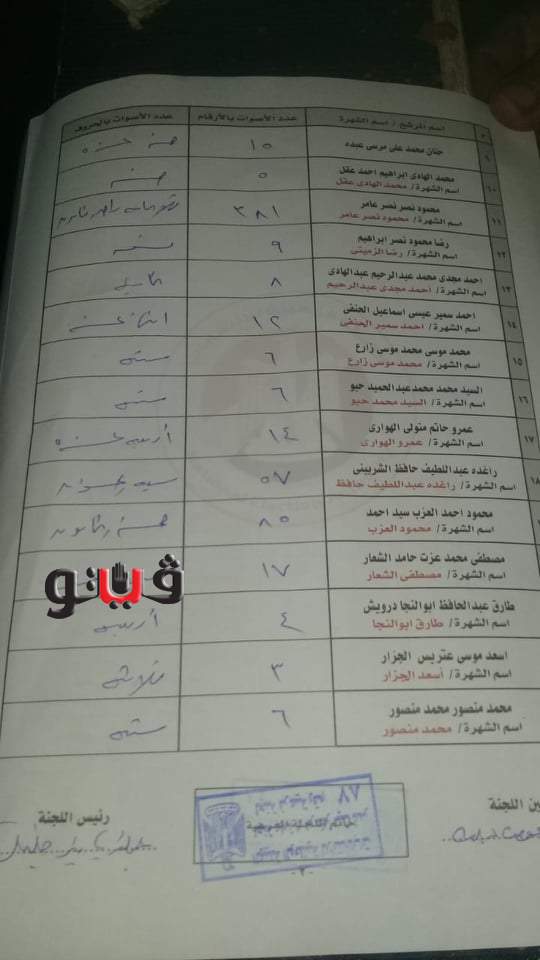 م
اسم المرشح / اسم الشهرة
عدد الأصوات بالأرقام
عدد الأصوات بالحروف
٩
حنان محمد على مرسى عبده
١٥
خمسة عشرة
١٠
محمد الهادى ابراهيم احمد عقل
اسم الشهرة / محمد الهادى عقل
٥
خمسة
١١
محمود نصر نصر عامر
اسم الشهرة/ محمود نصر عامر
٣٨١
١٢
رضا محمود نصر ابراهيم
اسم الشهرة / رضا الزمينى
٩
١٣
احمد مجدى محمد عبدالرحيم عبدالهادى
اسم الشهرة / احمد مجدى عبدالرحيم
٨
١٤
احمد سمير عيسى اسماعيل الحنفى
اسم الشهرة / احمد سمير الحنفى
١٢
١٥
محمد موسى محمد موسى زارع
اسم الشهرة/ محمد موسى زارع
٦
ستة
١٦
السيد محمد محمدعبدالحميد حبو
اسم الشهرة / السيد محمد حبو
٦
ستة
١٧
عمرو حاتم متولى الهوارى
اسم الشهرة / عمرو الهوارى
١٤
أربعة عشرة
راغده عبداللطيف حافظ الشربينى
اسم الشهرة / راغده عبداللطيف حافظ
٥٧
سبعة وخمسون
محمود احمد العزب سيد احمد
اسم الشهرة/ محمود العزب
٨٥
خمسة وثمانون
مصطفى محمد عزت حامد الشعار
اسم الشهرة/ مصطفى الشعار
١٧
ڤيتو
طارق عبدالحافظ ابوالنجا درويش
اسم الشهرة/ طارق ابوالنجا
٤
أربعة
اسعد موسى عتريس الجزار
اسم الشهرة/ أسعد الجزار
٣
ثلاثة
محمد منصور محمد منصور
اسم الشهرة/ محمد منصور
٦
ستة
ين اللجنة
رئيس اللجنة
٨٧
-٢-